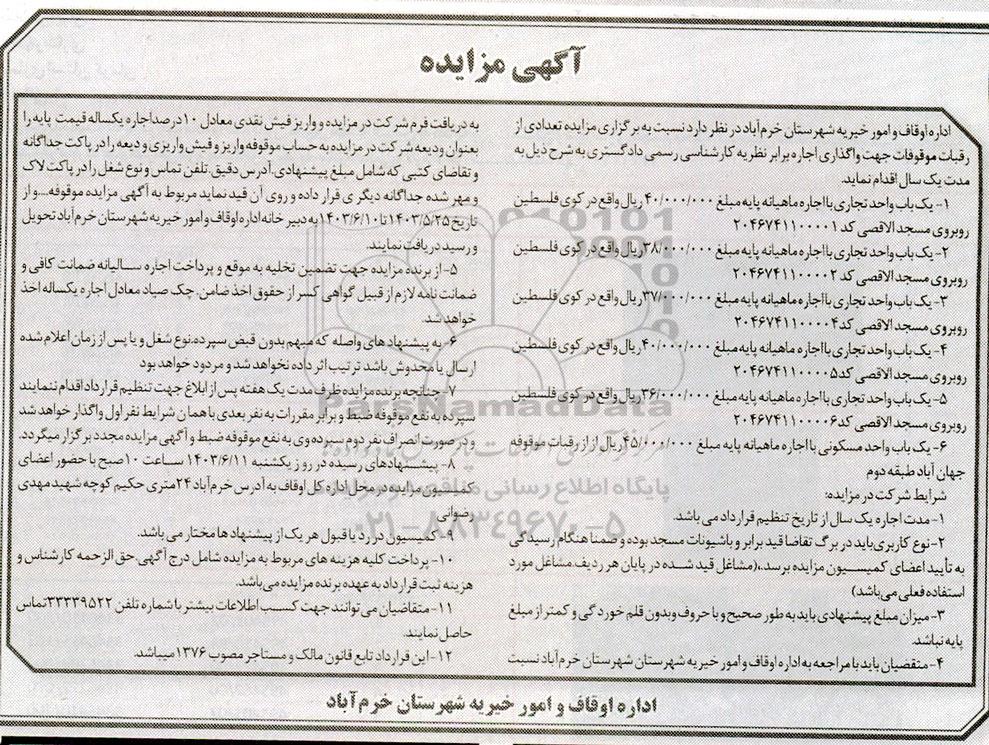 آگهی مزایده
اداره اوقاف و امور خیریه شهرستان خرم آباد در نظر دارد نسبت به برگزاری مزایده تعدادی از
رقبات موقوفات جهت واگذاری اجاره برابر نظریه کارشناسی رسمی دادگستری به شرح ذیل به
مدت یک سال اقدام نماید.
۱- یک باب واحد تجاری با اجاره ماهیانه پایه مبلغ ۴۰/۰۰۰/۰۰۰ ریال واقع در کوی فلسطین
روبروی مسجد الاقصی کد ۲۰۴۶۷۴۱۱۰۰۰۰۱
۲- یک باب واحد تجاری با اجاره ماهیانه پایه مبلغ ۳۸/۰۰۰/۰۰۰ ریال واقع در کوی فلسطین
روبروی مسجد الاقصی کد ۲۰۴۶۷۴۱۱۰۰۰۰۲
۳- یک باب واحد تجاری با اجاره ماهیانه پایه مبلغ ۳۷/۰۰۰/۰۰۰ ریال واقع در کوی فلسطین
روبروی مسجد الاقصی کد ۲۰۴۶۷۴۱۱۰۰۰۰۴
۴- یک باب واحد تجاری با اجاره ماهیانه پایه مبلغ ۴۰/۰۰۰/۰۰۰ ریال واقع در کوی فلسطین
روبروی مسجد الاقصی کد ۲۰۴۶۷۴۱۱۰۰۰۰۵
۵- یک باب واحد تجاری با اجاره ماهیانه پایه مبلغ ۳۶/۰۰۰/۰۰۰ ریال واقع در کوی فلسطین
روبروی مسجد الاقصی کد ۲۰۴۶۷۴۱۱۰۰۰۰۶
۶- یک باب واحد مسکونی با اجاره ماهیانه پایه مبلغ ۴۵/۰۰۰/۰۰۰ ریال از از رقبات موقوفه
جهان آباد طبقه دوم
شرایط شرکت در مزایده:
۱- مدت اجاره یک سال از تاریخ تنظیم قرارداد می باشد.
۲- نوع کاربری باید در برگ تقاضا قید برابر و با شیونات مسجد بوده و ضمنا هنگام رسیدگی
به تأیید اعضای کمیسیون مزایده برسد.،(مشاغل قید شده در پایان هر ردیف مشاغل مورد
استفاده فعلی می باشد)
۳- میزان مبلغ پیشنهادی باید به طور صحیح و با حروف و بدون قلم خوردگی و کمتر از مبلغ
پایه نباشد.
۴- متقضیان باید با مراجعه به اداره اوقاف و امور خیریه شهرستان شهرستان خرم آباد نسبت
به دریافت فرم شرکت در مزایده و واریز فیش نقدی معادل ۱۰ درصد اجاره یکساله قیمت پایه را
بعنوان ودیعه شرکت در مزایده به حساب موقوفه واریز و فیش واریزی ودیعه را در پاکت جداگانه
و تقاضای کتبی که شامل مبلغ پیشنهادی. آدرس دقیق. تلفن تماس و نوع شغل را در پاکت لاک
و مهر شده جداگانه دیگری قرار داده و روی آن قید نماید مربوط به آگهی مزایده موقوفه....و از
تاریخ ۱۴۰۳/۵/۲۵ تا ۱۴۰۳/۶/۱۰ به دبیرخانه اداره اوقاف و امور خیریه شهرستان خرم آباد تحویل
و رسید دریافت نمایند.
۵- از برنده مزایده جهت تضمین تخلیه به موقع و پرداخت اجاره سالیانه ضمانت کافی و
ضمانت نامه لازم از قبیل گواهی کسر از حقوق اخذ ضامن. چک صیاد معادل اجاره یکساله اخذ
خواهد شد.
۶- به پیشنهادهای واصله که مبهم بدون قبض سپرده. نوع شغل و یا پس از زمان اعلام شده
ارسال یا مخدوش باشد ترتیب اثر داده نخواهد شد و مردود خواهد بود
۷- چنانچه برنده مزایده ظرف مدت یک هفته پس از ابلاغ جهت تنظیم قرارداد اقدام ننمایند
سپرده به نفع موقوفه ضبط و برابر مقررات به نفر بعدی با همان شرایط نفر اول واگذار خواهد شد
و در صورت انصراف نفر دوم سپرده وی به نفع موقوفه ضبط و آگهی مزایده مجدد برگزار میگردد.
۸- پیشنهادهای رسیده در روز یکشنبه ۱۴۰۳/۶/۱۱ ساعت ۱۰ صبح با حضور اعضای
کمیسیون مزایده در محل اداره کل اوقاف به آدرس خرم آباد ۲۴ متری حکیم کوچه شهید مهدی
رضوانی
۹- کمیسیون در رد یا قبول هر یک از پیشنهادها مختار می باشد.
۱۰- پرداخت کلیه هزینه های مربوط به مزایده شامل درج آگهی. حق الزحمه کارشناس و
هزینه ثبت قرارداد به عهده برنده مزایده می‌باشد.
۱۱- متقاضیان می توانند جهت کسب اطلاعات بیشتر با شماره تلفن ۳۳۳۳۹۵۲۲ تماس
حاصل نمایند.
۱۲- این قرارداد تابع قانون مالک و مستاجر مصوب ۱۳۷۶ میباشد.
اداره اوقاف و امور خیریه شهرستان خرم آباد
ParsNamadData
پایگاه اطلاع رسانی مناقصه و مزایده
۰۲۱-۸۸۳۴۹۶۷۰-۵